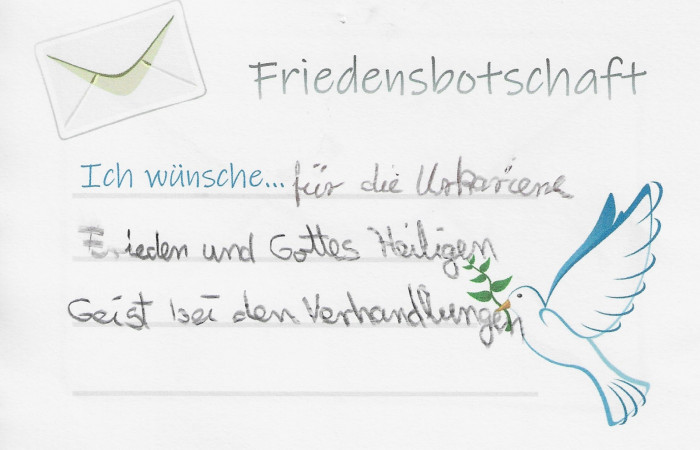 Friedensbotschaft
Ich wünsche... für die
Frieden und Gottes Heiligen
Geist bei den Verhandlungen